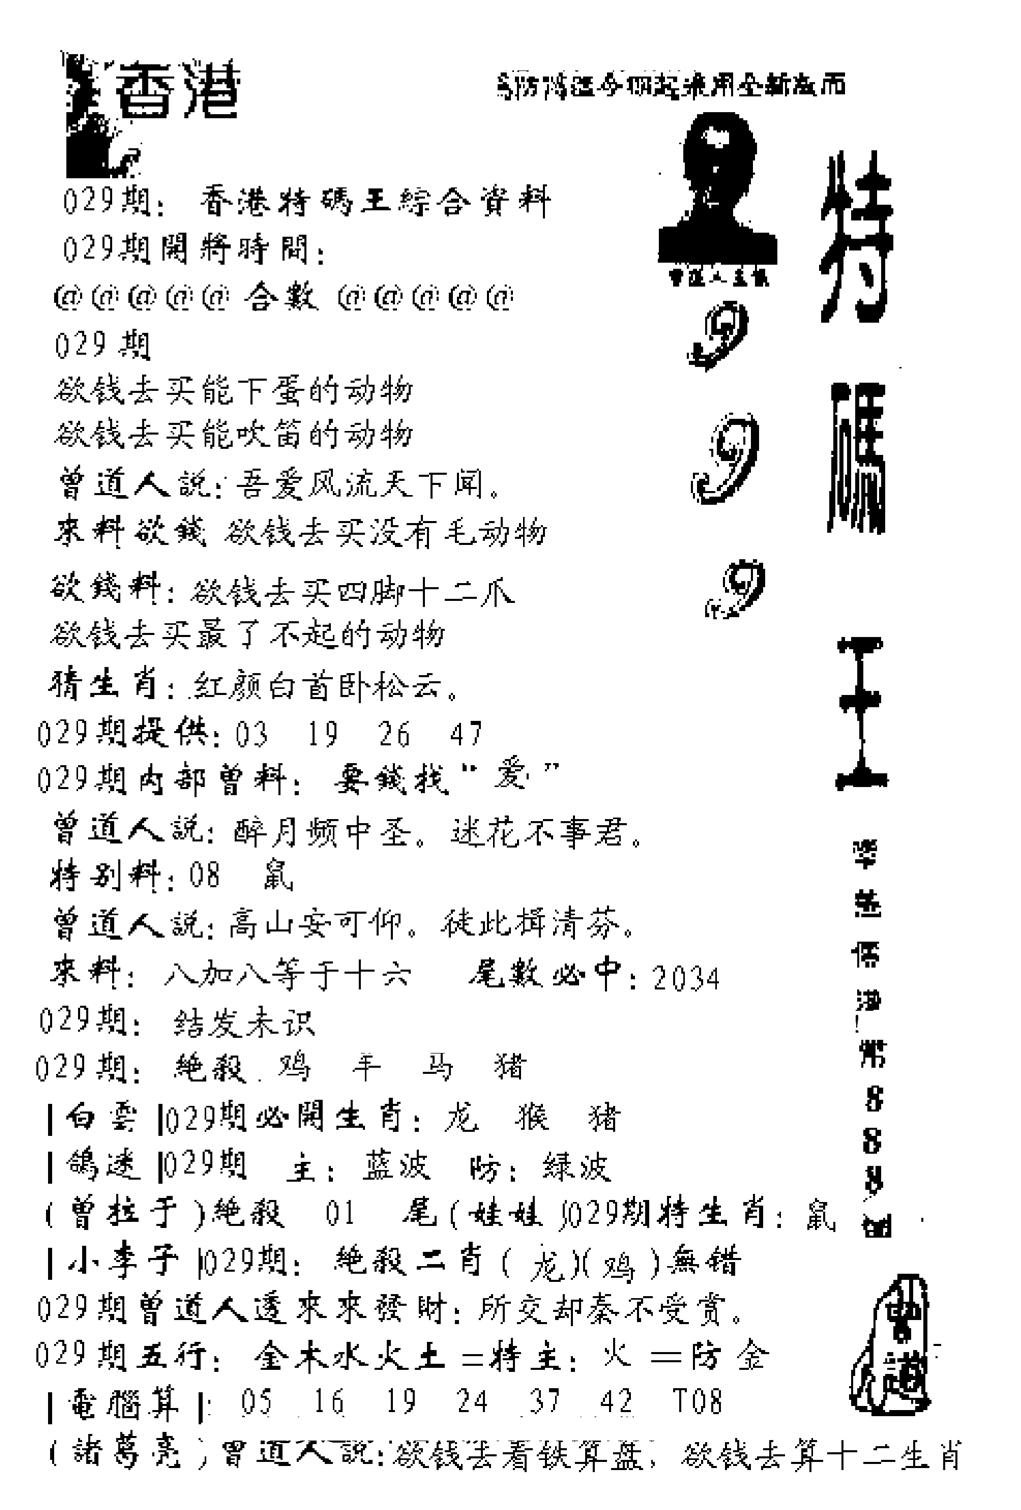 香港
029期: 香港特碼王綜合資料
029期開將時間:
@@@@@ 合數 @@@@@
029期
欲钱去买能下蛋的动物
欲钱去买能吹笛的动物
曾道人説:吾爱风流天下闻。
來料欲錢 欲钱去买没有毛动物
欲錢料: 欲钱去买四脚十二爪
欲钱去买最了不起的动物
猜生肖: 红颜白首卧松云。
029期提供: 03 19 26 47
029期内部曾料: 要錢找“爱”
曾道人説: 醉月频中圣。迷花不事君。
特别料: 08 鼠
曾道人説: 高山安可仰。徒此揖清芬。
來料: 八加八等于十六 尾數必中: 2034
029期: 结发未识
029期: 絶殺 鸡 羊 马 猪
|白雲|029期必開生肖: 龙 猴 猪
|鴿迷|029期 主: 蓝波 防: 绿波
(曾拉于)絶殺 01 尾(娃娃)029期特生肖: 鼠
|小李子|029期: 絶殺二肖(龙)(鸡)無错
029期曾道人透來來發財: 所交却秦不受赏。
029期五行: 金木水火土=特主: 火 =防 金
|電腦算|: 05 16 19 24 37 42 T08
(諸葛亮)曾道人説:欲钱去看铁算盘, 欲钱去算十二生肖
999
特碼王
888